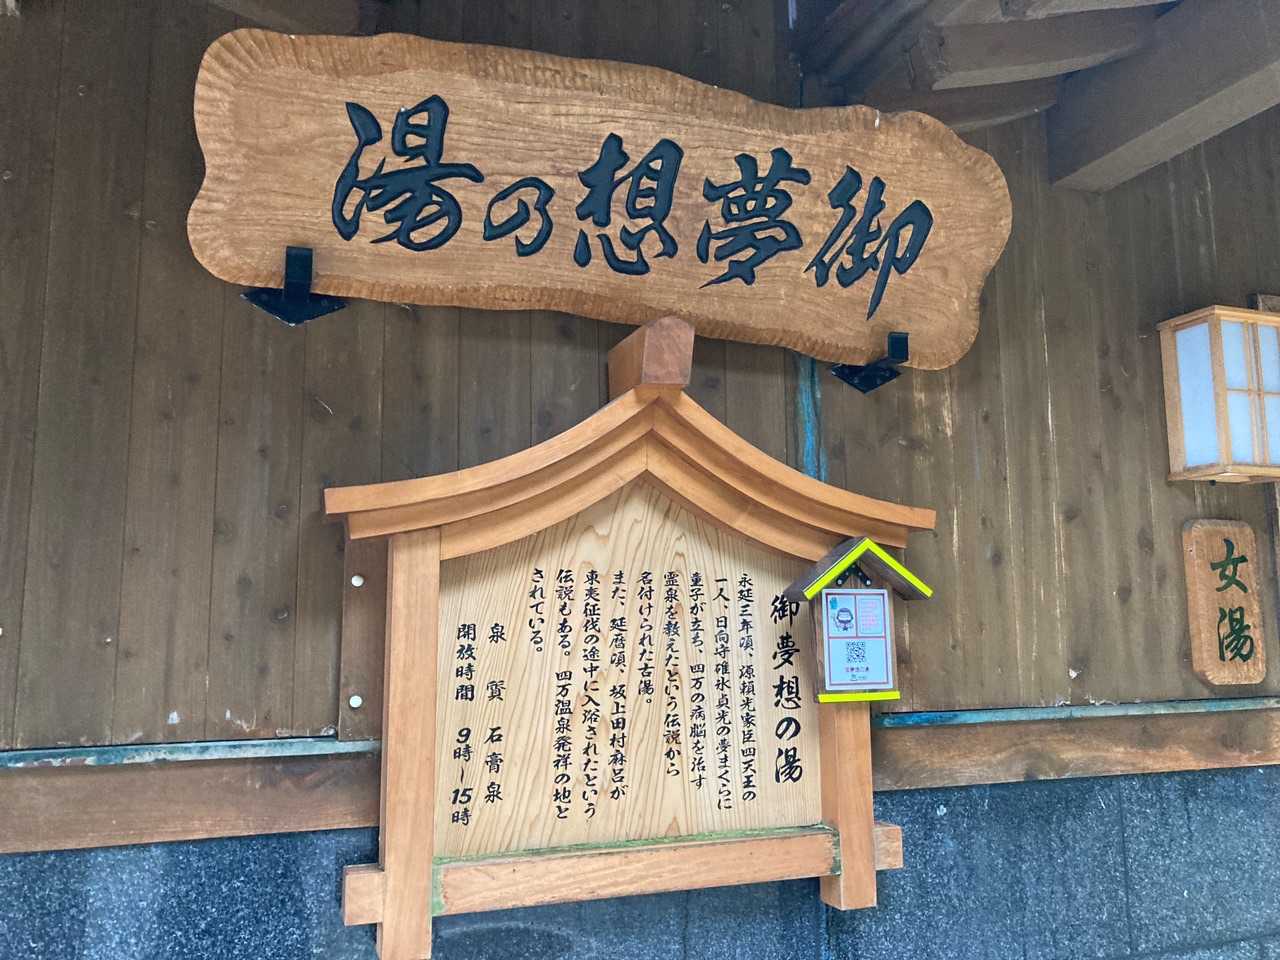 御夢想乃湯
御夢想の湯
永延三年頃、源頼光家臣四天王の
一人、日向守碓氷貞光の夢まくらに
童子が立ち、四万の病脳を治す
霊泉を教えたという伝説から
名付けられた古湯。
また、延暦頃、坂上田村麻呂が
東夷征伐の途中に入浴されたという
伝説もある。四万温泉発祥の地と
されている。
泉質 石膏泉
開放時間 9時～15時
女湯